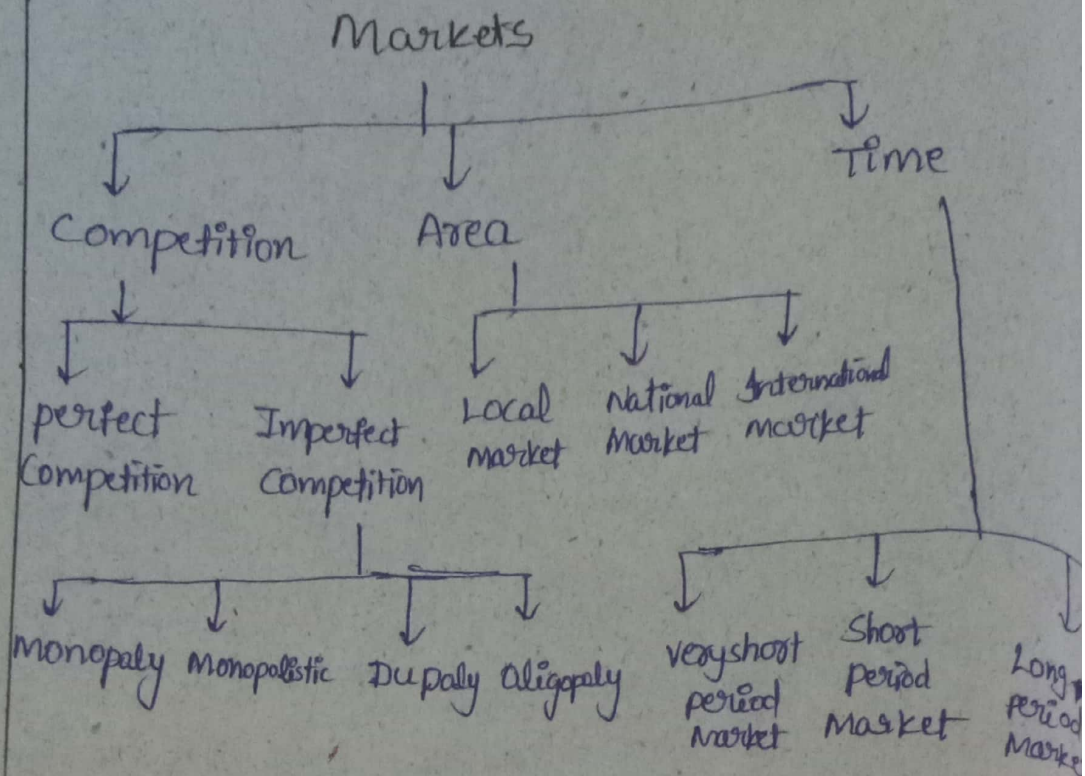 Markets
Time
Competition Area
perfect Competition
Imperfect Competition
Local market
National Market
International market
Monopaly Monopolistic Dupaly Oligopaly
Veryshort period Market
Short period Market
Long period Market